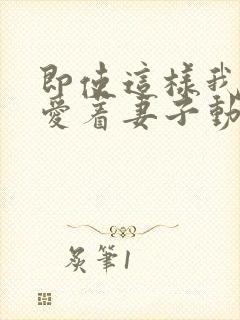 即使這樣我
愛着妻子動
炙筆1